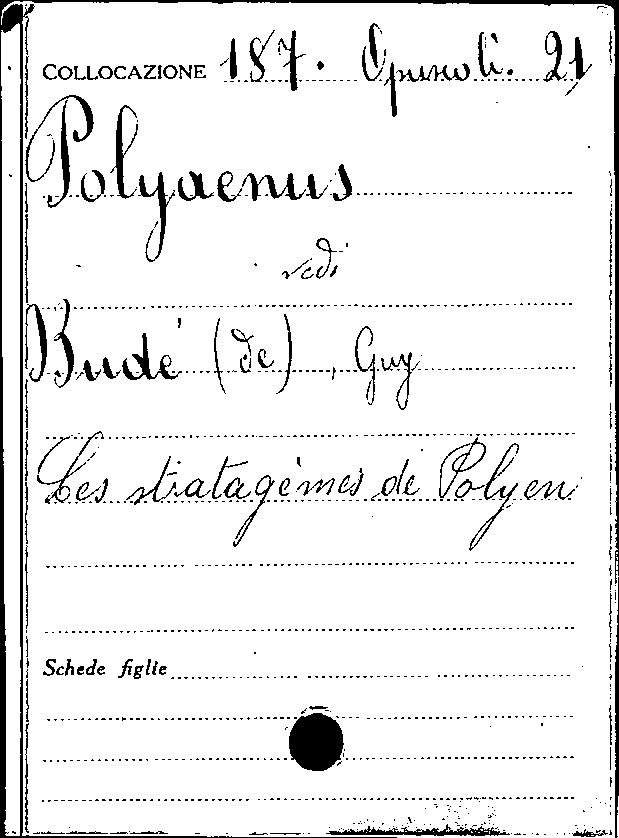 COLLOCAZIONE 187. Opuscoli. 21
Polyaenus
vedi
Budé (de), Guy
Les stratagèmes de Polyen
Schede figlie